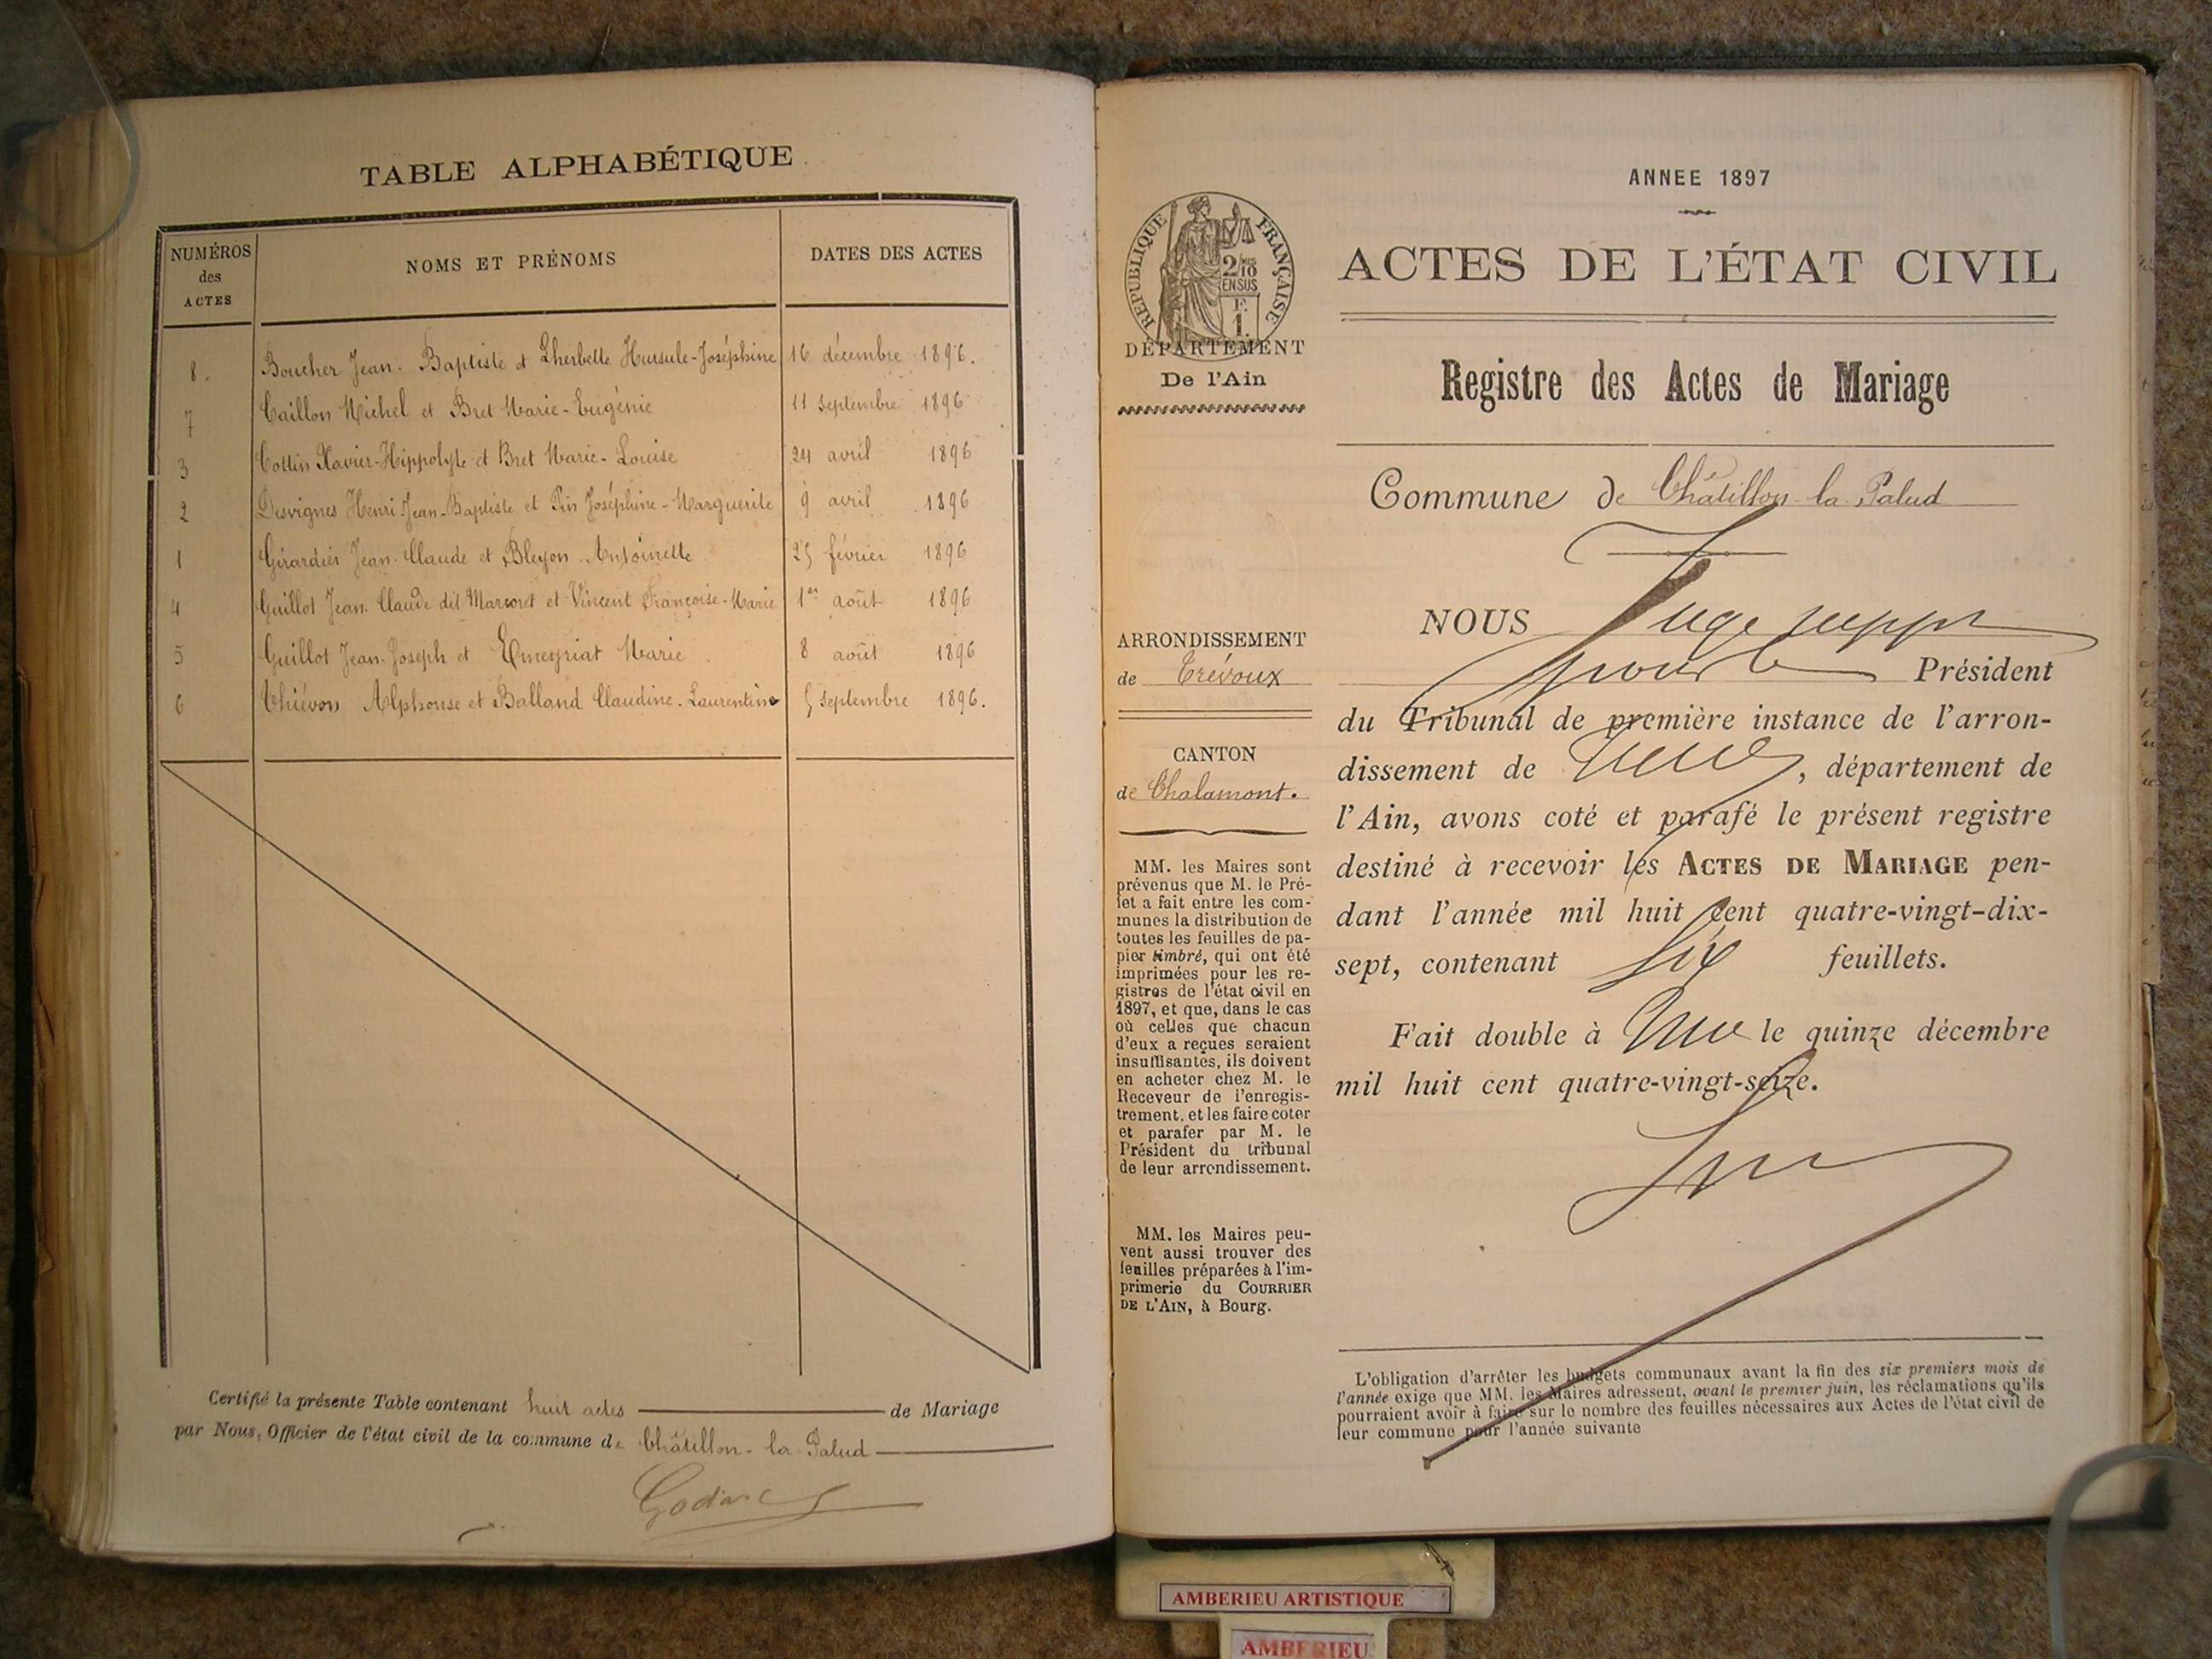 TABLE ALPHABÉTIQUE
NUMÉROS
des
ACTES
NOMS ET PRÉNOMS
DATES DES ACTES
8. Boucher Jean-Baptiste et Lherbette Hursule-Joséphine 16 décembre 1896.
7 Caillon Michel et Bret Marie-Eugénie 11 septembre 1896
3 Cottin Xavier-Hippolyte et Bret Marie-Louise 24 avril 1896
2 Desvignes Henri-Jean-Baptiste et Pin Joséphine-Marguerite 9 avril 1896
1 Girardin Jean-Claude et Bleyon Antoinette 25 février 1896
4 Guillot Jean-Claude dit et Vincent Françoise-Marie 1er août 1896
5 Guillot Jean-Joseph et Emeyriat Marie 8 août 1896
6 Thiévon Alphonse et Balland Claudine-Laurentine 5 septembre 1896.
Certifié la présente Table contenant huit actes de Mariage
par Nous, Officier de l'état civil de la commune de Châtillon-la-Palud
RÉPUBLIQUE FRANÇAISE
2/10
EN SUS
F.
1.
DÉPARTEMENT
De l'Ain
ARRONDISSEMENT
de Trévoux
CANTON
de Chalamont.
MM. les Maires sont
prévenus que M. le Pré-
fet a fait entre les com-
munes la distribution de
toutes les feuilles de pa-
pier timbré, qui ont été
imprimées pour les re-
gistres de l'état civil en
1897, et que, dans le cas
où celles que chacun
d'eux a reçues seraient
insuffisantes, ils doivent
en acheter chez M. le
Receveur de l'enregis-
trement, et les faire coter
et parafer par M. le
Président du tribunal
de leur arrondissement.
MM. les Maires peu-
vent aussi trouver des
feuilles préparées à l'im-
primerie du COURRIER
DE L'AIN, à Bourg.
ANNEE 1897
ACTES DE L'ÉTAT CIVIL
Registre des Actes de Mariage
Commune de Châtillon-la-Palud
NOUS Juge suppt
pour le Président
du Tribunal de première instance de l'arron-
dissement de , département de
l'Ain, avons coté et parafé le présent registre
destiné à recevoir les ACTES DE MARIAGE pen-
dant l'année mil huit cent quatre-vingt-dix-
sept, contenant six feuillets.
Fait double à le quinze décembre
mil huit cent quatre-vingt-seize.
L'obligation d'arrêter les budgets communaux avant la fin des six premiers mois de
l'année exige que MM. les Maires adressent, avant le premier juin, les réclamations qu'ils
pourraient avoir à faire sur le nombre des feuilles nécessaires aux Actes de l'état civil de
leur commune pour l'année suivante
AMBERIEU ARTISTIQUE
AMBERIEU